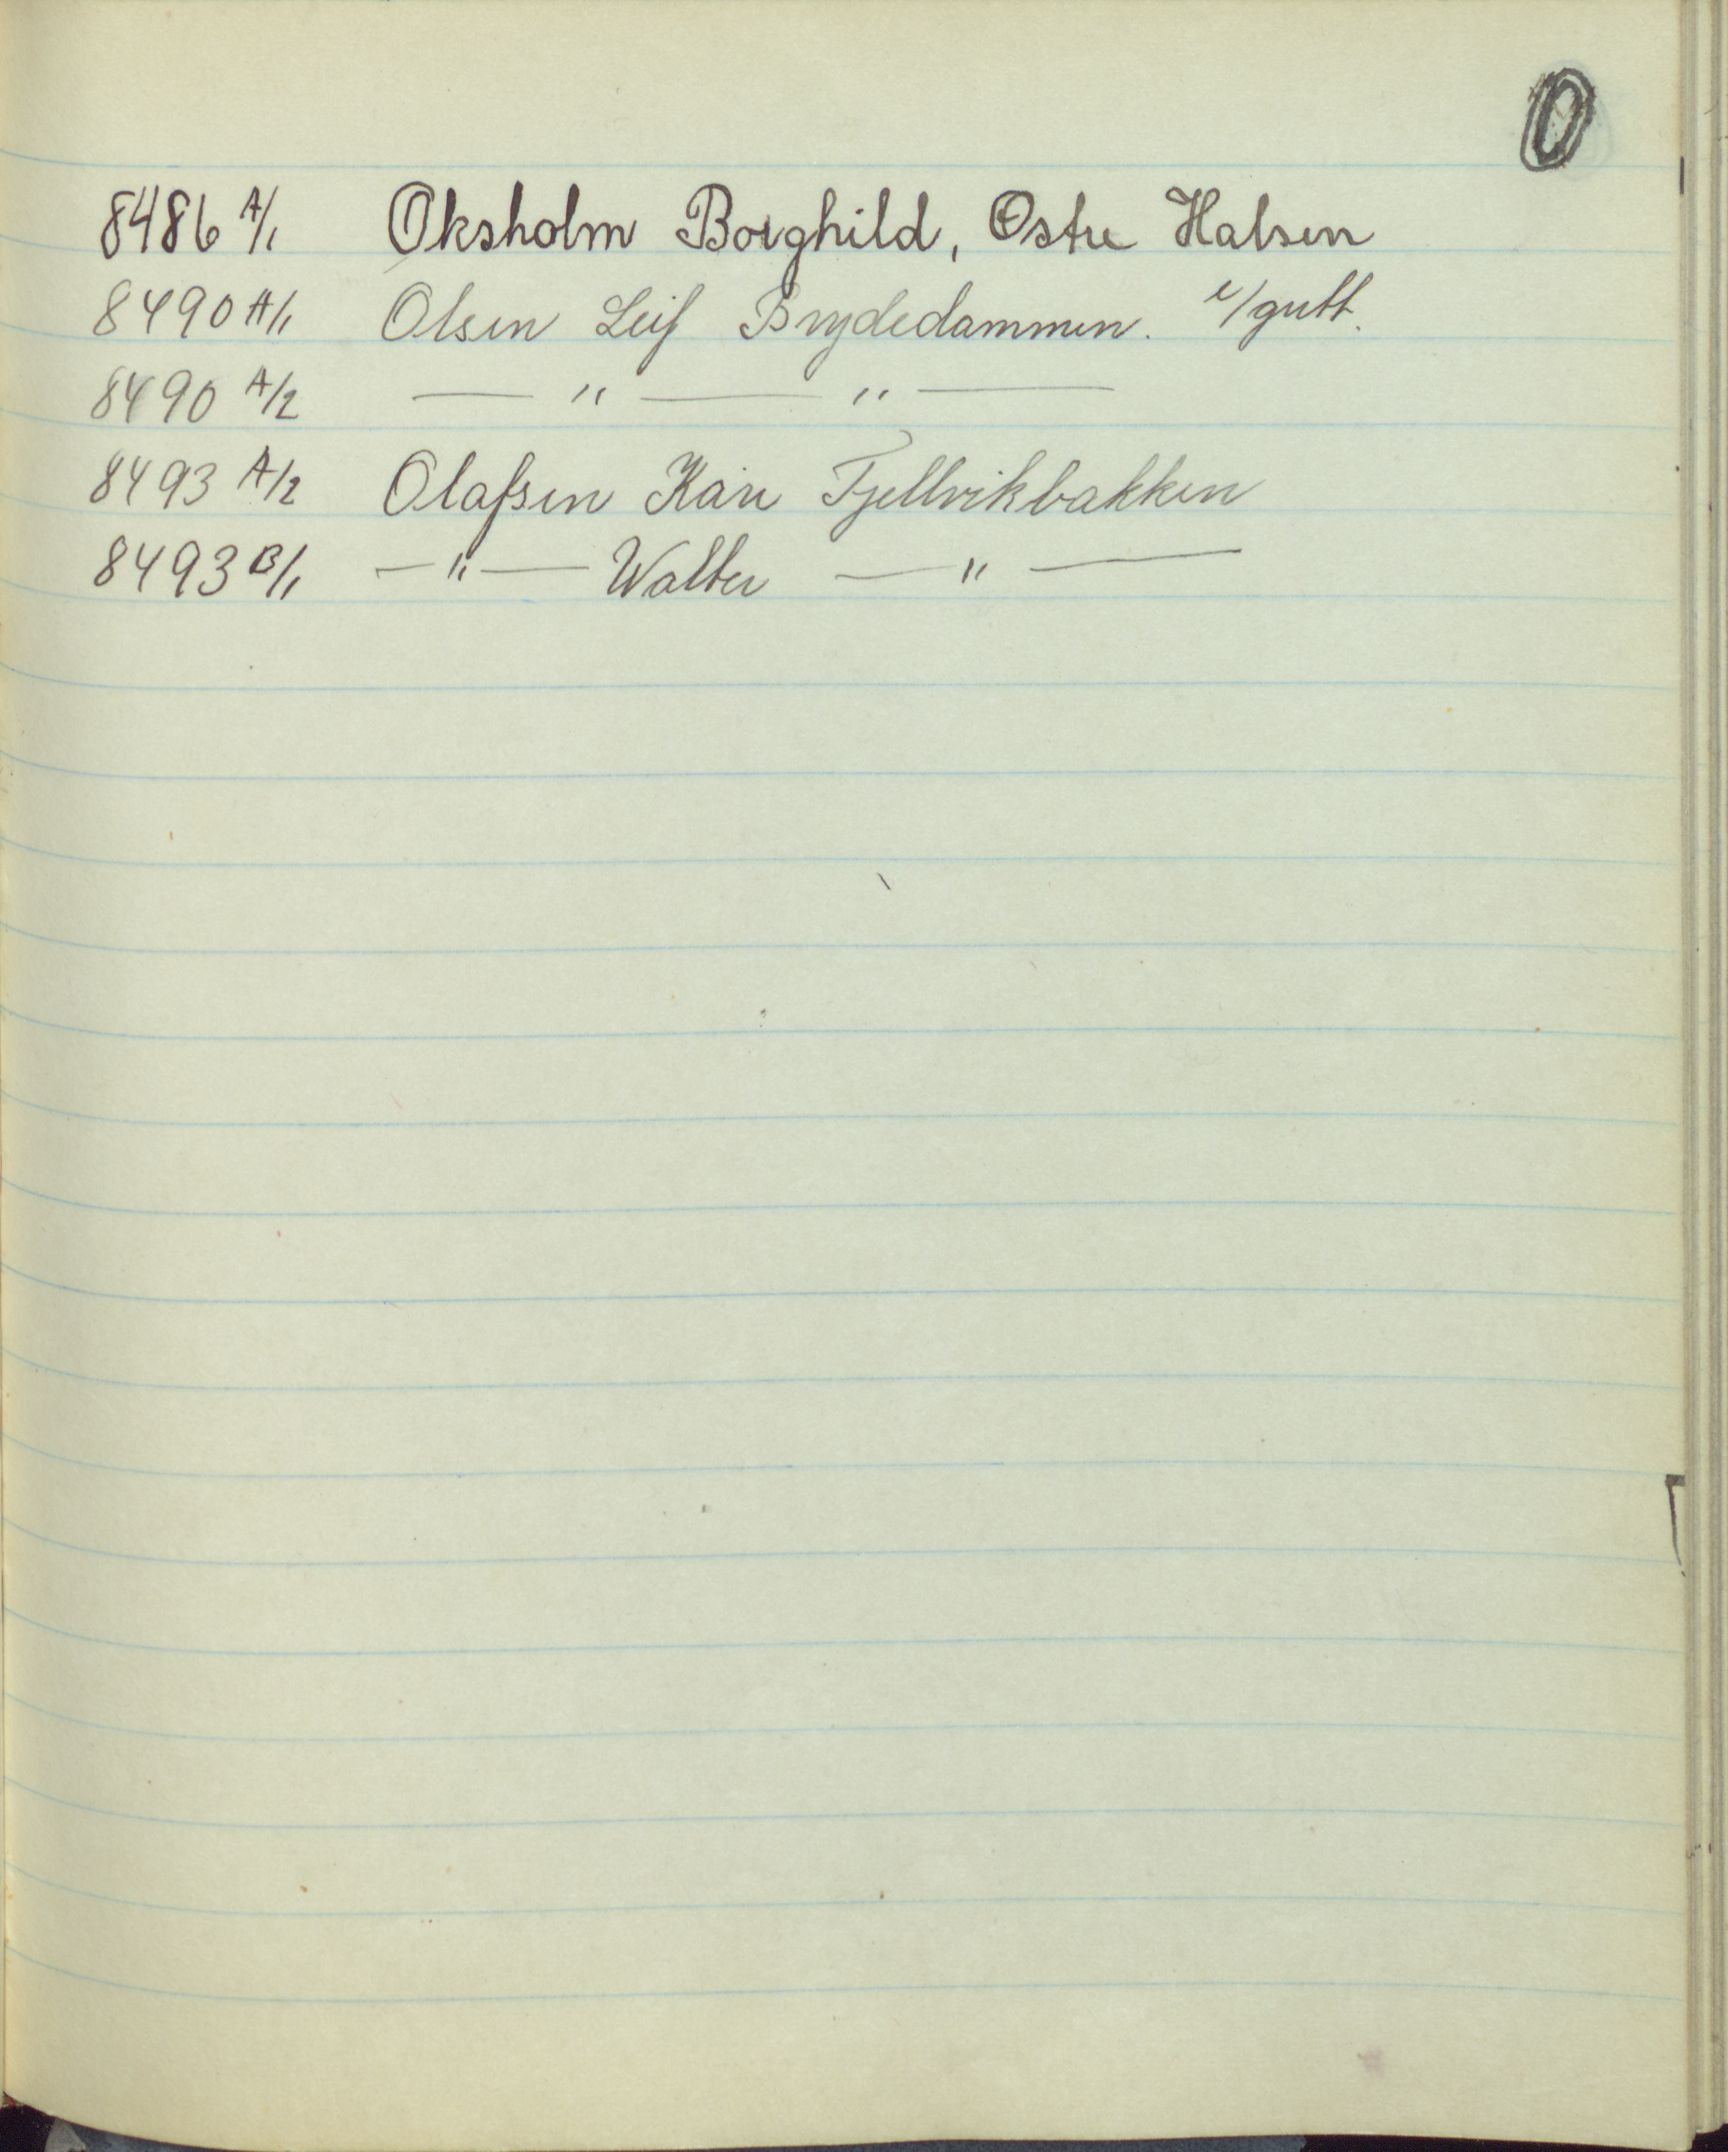 O
8486 A/1 Oksholm Borghild, Østre Halsen
8490 A/1 Olsen Leif Brydedammen. m/gutt.
8490 A/2 — " — " —
8493 A/2 Olafsen Kåre Fjellvikbakken
8493 B/1 — " — Walter — " —